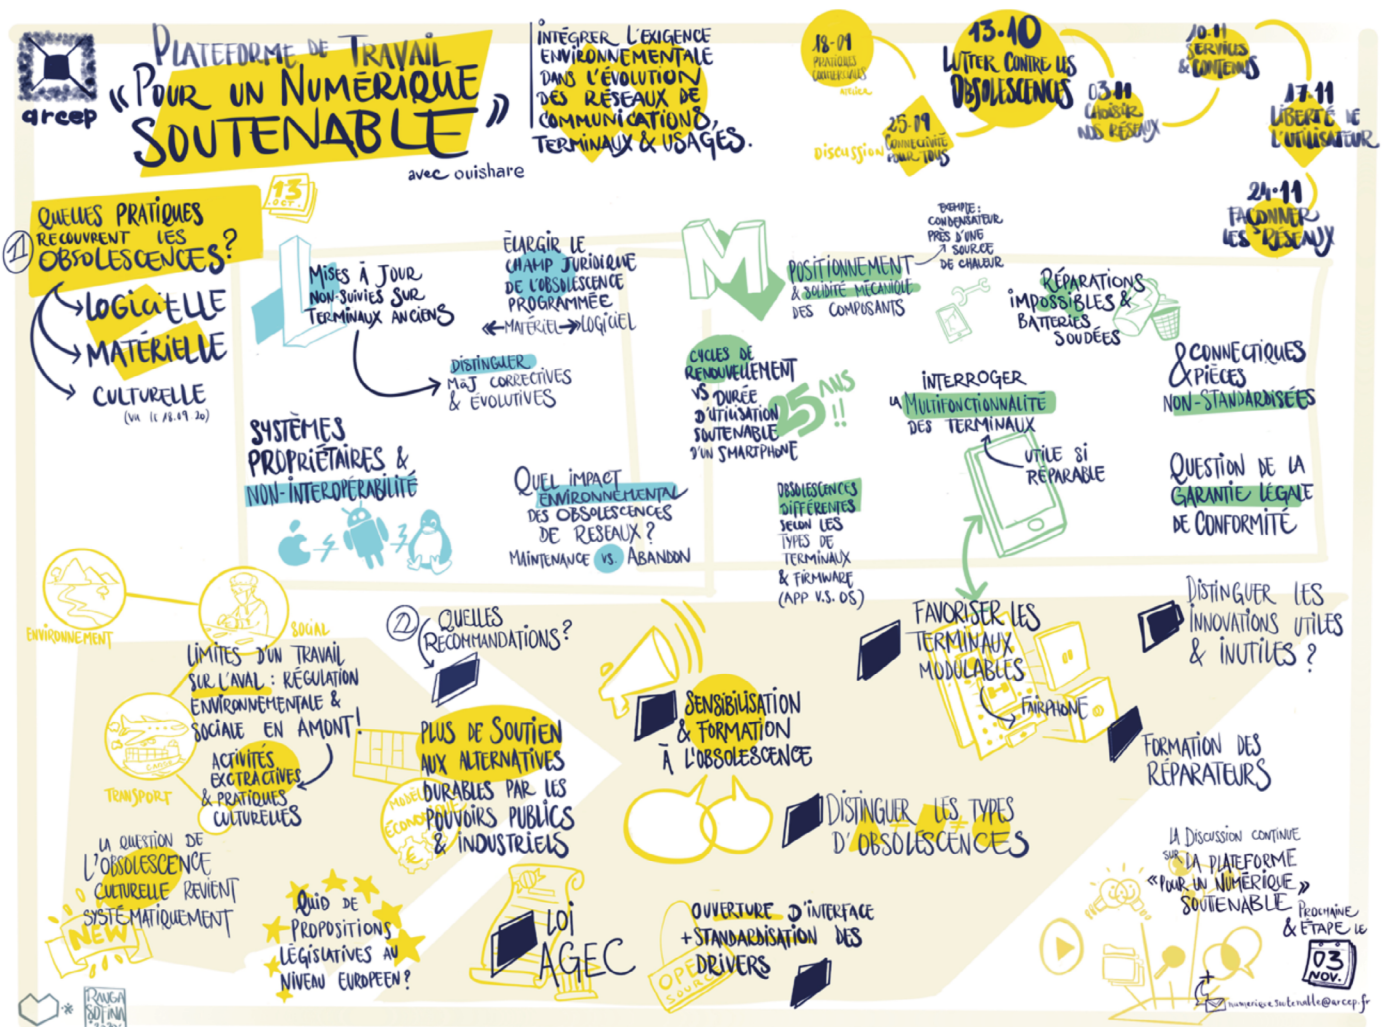 arcep
PLATEFORME DE TRAVAIL
« POUR UN NUMÉRIQUE
SOUTENABLE »
avec ouishare
INTÉGRER L'EXIGENCE
ENVIRONNEMENTALE
DANS L'ÉVOLUTION
DES RÉSEAUX DE
COMMUNICATIONS,
TERMINAUX & USAGES.
18-09
PRATIQUES
COMMERCIALES
Discussion
25-09
CONNECTIVITÉ
POUR TOUS
13.10
LUTTER CONTRE LES
OBSOLESCENCES
03-11
CHOISIR
NOS RÉSEAUX
10-11
SERVICES
& CONTENUS
17-11
LIBERTÉ DE
L'UTILISATEUR
24-11
FAÇONNER
LES RÉSEAUX
13
OCT.
1
QUELLES PRATIQUES
RECOUVRENT LES
OBSOLESCENCES?
LOGICIELLE
MATÉRIELLE
CULTURELLE
(VU LE 18.09.20)
L
MISES À JOUR
NON-SUIVIES SUR
TERMINAUX ANCIENS
DISTINGUER
MàJ CORRECTIVES
& ÉVOLUTIVES
ÉLARGIR LE
CHAMP JURIDIQUE
DE L'OBSOLESCENCE
PROGRAMMÉE
MATÉRIEL LOGICIEL
SYSTÈMES
PROPRIÉTAIRES &
NON-INTEROPÉRABILITÉ
QUEL IMPACT
ENVIRONNEMENTAL
DES OBSOLESCENCES
DE RESEAUX?
MAINTENANCE VS. ABANDON
M
POSITIONNEMENT
& SOLIDITÉ MÉCANIQUE
DES COMPOSANTS
EXEMPLE:
CONDENSATEUR
PRÈS D'UNE
SOURCE
DE CHALEUR
RÉPARATIONS
IMPOSSIBLES &
BATTERIES
SOUDÉES
CYCLES DE
RENOUVELLEMENT
VS DURÉE
D'UTILISATION
SOUTENABLE
D'UN SMARTPHONE
25 ANS
!!
INTERROGER
LA MULTIFONCTIONNALITÉ
DES TERMINAUX
UTILE SI
RÉPARABLE
& CONNECTIQUES
PIÈCES
NON-STANDARDISÉES
QUESTION DE LA
GARANTIE LÉGALE
DE CONFORMITÉ
OBSOLESCENCES
DIFFÉRENTES
SELON LES
TYPES DE
TERMINAUX
& FIRMWARE
(APP V.S. OS)
ENVIRONNEMENT
SOCIAL
TRANSPORT
LIMITES D'UN TRAVAIL
SUR L'AVAL : RÉGULATION
ENVIRONNEMENTALE &
SOCIALE EN AMONT!
ACTIVITÉS
EXCTRACTIVES
& PRATIQUES
CULTURELLES
LA QUESTION DE
L'OBSOLESCENCE
CULTURELLE REVIENT
SYSTÉMATIQUEMENT
NEW
2
QUELLES
RECOMMANDATIONS?
PLUS DE SOUTIEN
AUX ALTERNATIVES
DURABLES PAR LES
POUVOIRS PUBLICS
& INDUSTRIELS
MODÈLE
ÉCONOMIQUE
€
QUID DE
PROPOSITIONS
LÉGISLATIVES AU
NIVEAU EUROPEEN?
LOI
AGEC
SENSIBILISATION
& FORMATION
À L'OBSOLESCENCE
DISTINGUER LES TYPES
D'OBSOLESCENCES
OUVERTURE D'INTERFACE
+ STANDARDISATION DES
DRIVERS
OPEN
SOURCE
FAVORISER LES
TERMINAUX
MODULABLES
FAIRPHONE
DISTINGUER LES
INNOVATIONS UTILES
& INUTILES ?
FORMATION DES
RÉPARATEURS
LA DISCUSSION CONTINUE
SUR LA PLATEFORME
« POUR UN NUMÉRIQUE
SOUTENABLE »
PROCHAINE
& ÉTAPE LE
03
NOV.
numeriquesoutenable@arcep.fr